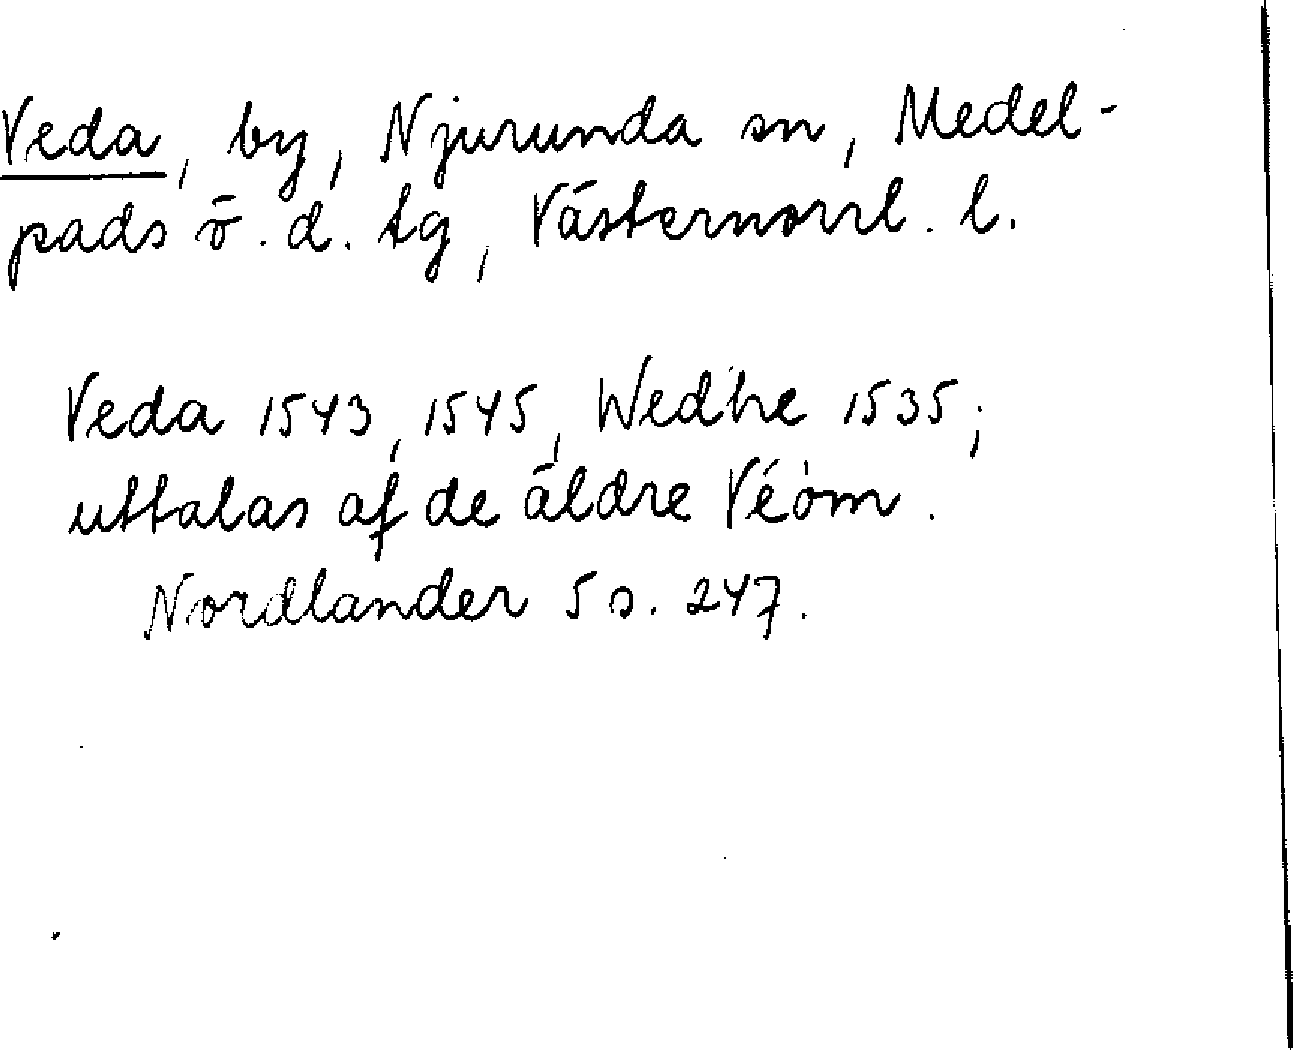 Veda, by, Njurunda sn, Medel-
pads ö. d. tg, Västernorrl. l.
Veda 1543, 1545, Wedhe 1535;
uttalas af de äldre Véòm.
Nordlander 5 s. 247.